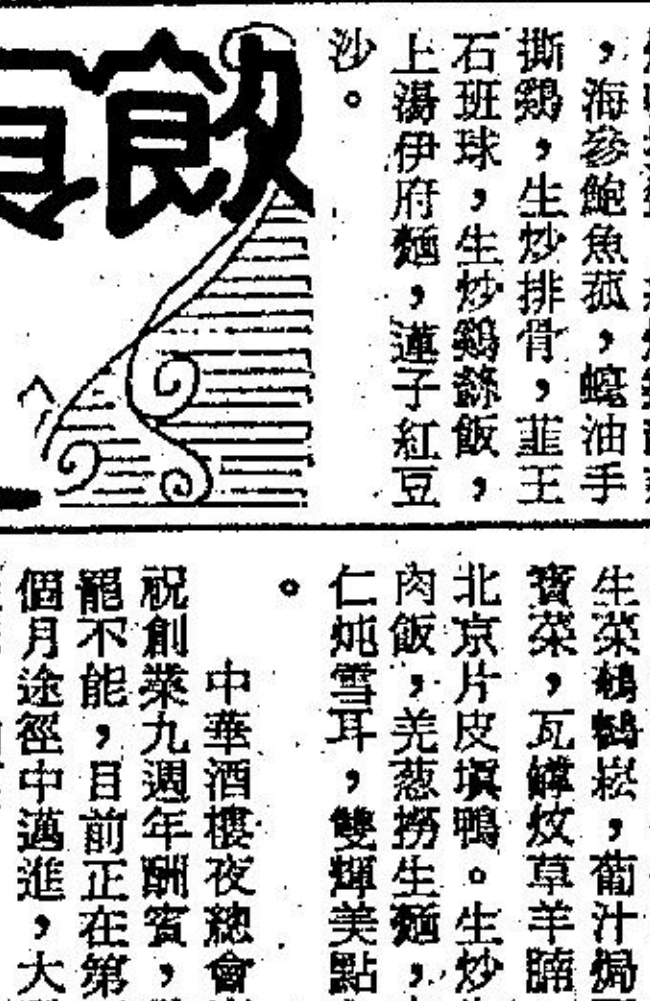 ，海參鮑魚菰，蠔油手
撕鷄，生炒排骨，韮王
石班球，生炒鷄絲飯，
上湯伊府麵，蓮子紅豆
沙。
飲食
生菜鵪鶉崧，葡汁焗
寶菜，瓦罉炆草羊腩
北京片皮塡鴨。生炒
肉飯，羌葱撈生麵，
仁炖雪耳，雙輝美點
。
中華酒樓夜總會
祝創業九週年酬賓，
罷不能，目前正在第
個月途徑中邁進，大